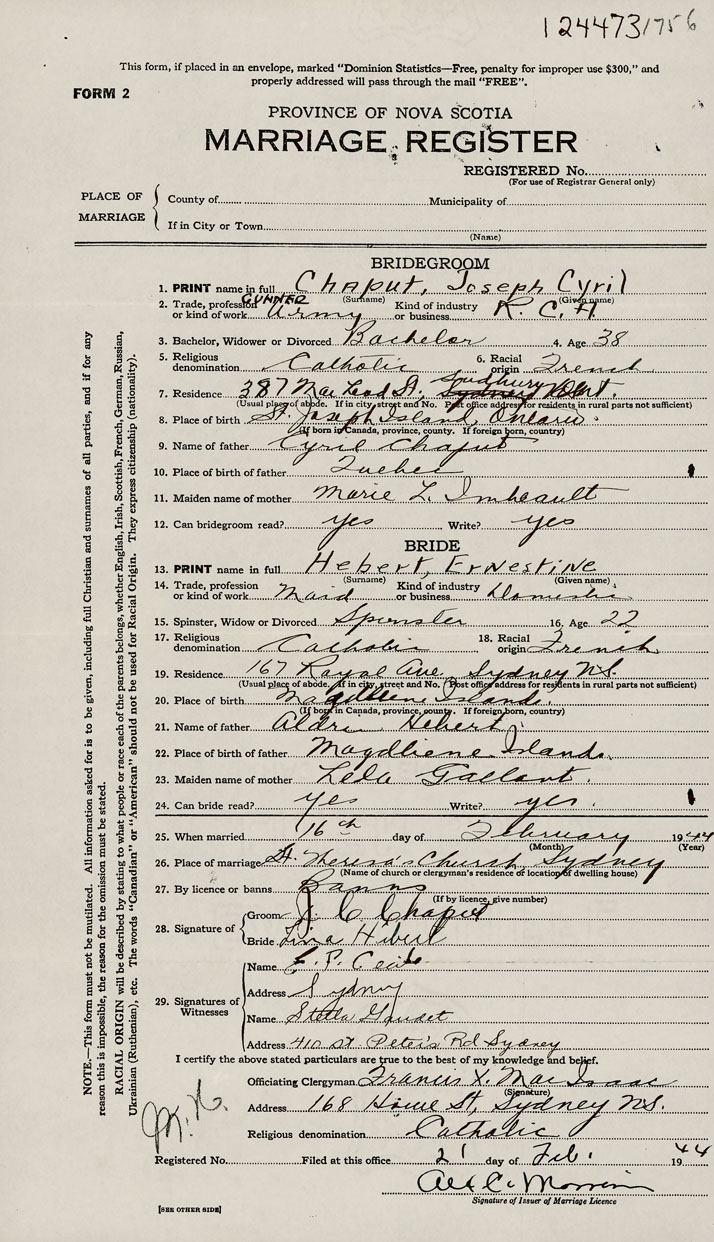 124473 1756
This form, if placed in an envelope, marked "Dominion Statistics—Free, penalty for improper use $300," and
properly addressed will pass through the mail "FREE".
FORM 2
PROVINCE OF NOVA SCOTIA
MARRIAGE REGISTER
REGISTERED No.
(For use of Registrar General only)
PLACE OF MARRIAGE
County of Municipality of
If in City or Town
(Name)
BRIDEGROOM
1. PRINT name in full Chaput, Joseph Cyril
(Surname) (Given name)
2. Trade, profession or kind of work GUNNER Army Kind of industry or business R. C. A.
3. Bachelor, Widower or Divorced Bachelor 4. Age 38
5. Religious denomination Catholic 6. Racial origin French
7. Residence 387 MacLeod St, Sudbury Ont.
(Usual place of abode. If in city, street and No. Post office address for residents in rural parts not sufficient)
8. Place of birth St. Joseph Island, Ontario
(If born in Canada, province, county. If foreign born, country)
9. Name of father Cyril Chaput
10. Place of birth of father Quebec
11. Maiden name of mother Marie L. Imbeault
12. Can bridegroom read? yes Write? yes
BRIDE
13. PRINT name in full Hebert, Ernestine
(Surname) (Given name)
14. Trade, profession or kind of work Maid Kind of industry or business Domestic
15. Spinster, Widow or Divorced Spinster 16. Age 22
17. Religious denomination Catholic 18. Racial origin French
19. Residence 167 Royal Ave, Sydney N.S.
(Usual place of abode. If in city, street and No. Post office address for residents in rural parts not sufficient)
20. Place of birth Magdliene Islands.
(If born in Canada, province, county. If foreign born, country)
21. Name of father Hebert.
22. Place of birth of father Magdliene Islands.
23. Maiden name of mother Leda Gallant.
24. Can bride read? yes Write? yes.
25. When married 16th day of February 1944
(Month) (Year)
26. Place of marriage St. Theresa's Church Sydney
(Name of church or clergyman's residence of location of dwelling house)
27. By licence or banns Banns
(If by licence, give number)
28. Signature of
Groom J. C. Chaput
Bride Hebert
29. Signatures of Witnesses
Name E. P.
Address Sydney
Name Stella
Address 410 St Peter's Rd Sydney
I certify the above stated particulars are true to the best of my knowledge and belief.
Officiating Clergyman Francis X. MacIsaac
(Signature)
Address 168 Howe St, Sydney N.S.
Religious denomination Catholic
Registered No. Filed at this office 21 day of Feb. 1944
Signature of Issuer of Marriage Licence
[SEE OTHER SIDE]
NOTE.—This form must not be mutilated. All information asked for is to be given, including full Christian and surnames of all parties, and if for any
reason this is impossible, the reason for the omission must be stated.
RACIAL ORIGIN will be described by stating to what people or race each of the parents belongs, whether English, Irish, Scottish, French, German, Russian,
Ukrainian (Ruthenian), etc. The words "Canadian" or "American" should not be used for Racial Origin. They express citizenship (nationality).